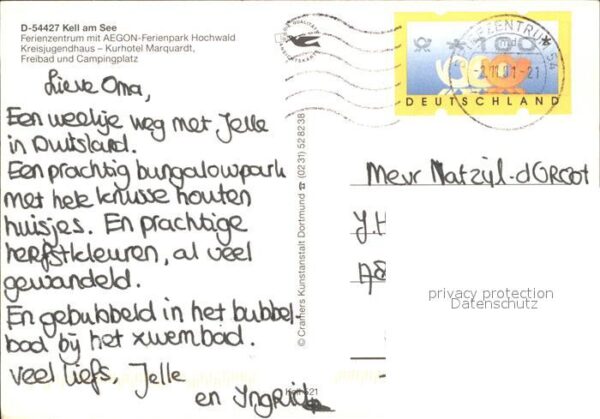 D-54427 Kell am See
Ferienzentrum mit AEGON-Ferienpark Hochwald
Kreisjugendhaus – Kurhotel Marquardt,
Freibad und Campingplatz
Lieve Oma,
Een weekje weg met Jelle
in Duitsland.
Een prachtig bungalowpark
met hele knusse houten
huisjes. En prachtige
herfstkleuren, al veel
gewandeld.
En gebubbeld in het bubbel-
bad bij het zwembad.
Veel liefs, Jelle
en Ingrid
© Cramers Kunstanstalt Dortmund ☎ (0231) 528238
100
DEUTSCHLAND
Mevr Natzijl-dGroot
J.H
privacy protection
Datenschutz